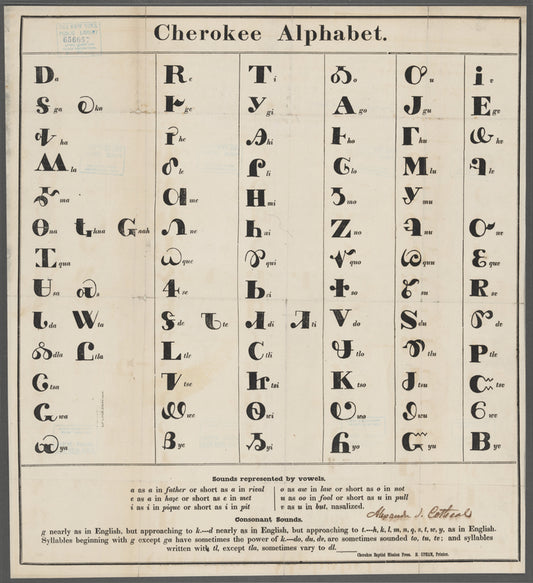 Cherokee Alphabet.
Ꭰa Ꭱe Ꭲi Ꭳo Ꭴu Ꭵv
Ꭶga Ꭷka Ꭸge Ꭹgi Ꭺgo Ꭻgu Ꭼgv
Ꭽha Ꭾhe Ꭿhi Ꮀho Ꮁhu Ꮂhv
Ꮃla Ꮄle Ꮅli Ꮆlo Ꮇlu Ꮈlv
Ꮉma Ꮊme Ꮋmi Ꮌmo Ꮍmu
Ꮎna Ꮏhna Ꮐnah Ꮑne Ꮒni Ꮓno Ꮔnu Ꮕnv
Ꮖqua Ꮗque Ꮘqui Ꮙquo Ꮚquu Ꮛquv
Ꮜsa Ꮝs Ꮞse Ꮟsi Ꮠso Ꮡsu Ꮢsv
Ꮣda Ꮤta Ꮥde Ꮦte Ꮧdi Ꮨti Ꮩdo Ꮪdu Ꮫdv
Ꮬdla Ꮭtla Ꮮtle Ꮯtli Ꮰtlo Ꮱtlu Ꮲtlv
Ꮳtsa Ꮴtse Ꮵtsi Ꮶtso Ꮷtsu Ꮸtsv
Ꮹwa Ꮺwe Ꮻwi Ꮼwo Ꮽwu Ꮾwv
Ꮿya Ᏸye Ᏹyi Ᏺyo Ᏻyu Ᏼyv
Sounds represented by vowels.
a as a in father or short as a in rival
e as a in hate or short as e in met
i as i in pique or short as i in pit
o as aw in law or short as o in not
u as oo in fool or short as u in pull
v as u in but, nasalized.
Consonant Sounds.
g nearly as in English, but approaching to k.—d nearly as in English, but approaching to t.—h, k, l, m, n, q, s, t, w, y, as in English.
Syllables beginning with g except ga have sometimes the power of k.—do, du, dv, are sometimes sounded to, tu, tv; and syllables
written with tl, except tla, sometimes vary to dl.
Cherokee Baptist Mission Press. H. UPHAM, Printer.